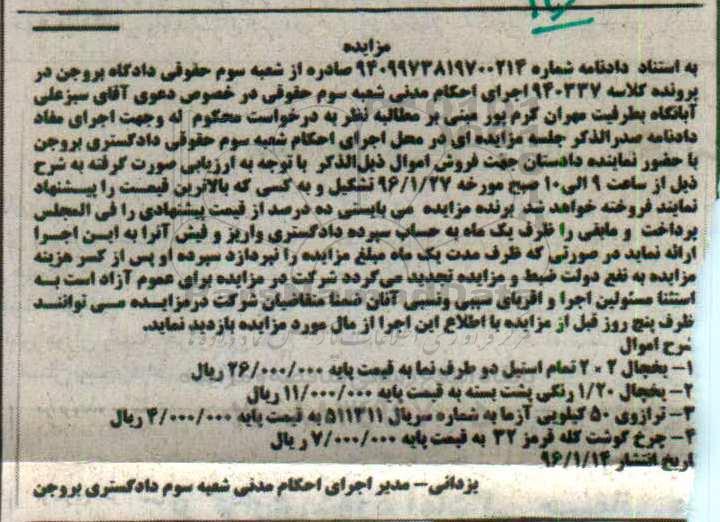 مزایده
به استناد دادنامه شماره ۹۴۰۹۹۷۳۸۱۹۷۰۰۲۱۴ صادره از شعبه سوم حقوقی دادگاه بروجن در
پرونده کلاسه ۹۴۰۳۳۷ اجرای احکام مدنی شعبه سوم حقوقی در خصوص دعوی آقای سبزعلی
آبانگاه بطرفیت مهران کرم پور مبنی بر مطالبه نظر به درخواست محکوم له وجهت اجرای مفاد
دادنامه صدرالذکر جلسه مزایده ای در محل اجرای احکام شعبه سوم حقوقی دادگستری بروجن
با حضور نماینده دادستان جهت فروش اموال ذیل‌الذکر با توجه به ارزیابی صورت گرفته به شرح
ذیل از ساعت ۹ الی۱۰ صبح مورخه ۹۶/۱/۲۷ تشکیل و به کسی که بالاترین قیمت را پیشنهاد
نمایند فروخته خواهد شد برنده مزایده می بایستی ده درصد از قیمت پیشنهادی را فی المجلس
پرداخت و مابقی را ظرف یک ماه به حساب سپرده دادگستری واریز و فیش آنرا به این اجرا
ارائه نماید در صورتی که ظرف مدت یک ماه مبلغ مزایده را نپردازد سپرده او پس از کسر هزینه
مزایده به نفع دولت ضبط و مزایده تجدید می‌گردد شرکت در مزایده برای عموم آزاد است به
استثنا مسئولین اجرا و اقربای سببی ونسبی آنان ضمنا متقاضیان شرکت درمزایده می توانند
ظرف پنج روز قبل از مزایده با اطلاع این اجرا از مال مورد مزایده بازدید نماید.
شرح اموال
۱- یخچال ۲ × ۲ تمام استیل دو طرف نما به قیمت پایه ۲۶/۰۰۰/۰۰۰ ریال
۲- یخچال ۱/۲۰ رنگی پشت بسته به قیمت پایه ۱۱/۰۰۰/۰۰۰ ریال
۳- ترازوی ۵۰ کیلویی آزما به شماره سریال ۵۱۱۳۱۱ به قیمت پایه ۴/۰۰۰/۰۰۰ ریال
۴- چرخ گوشت کله قرمز ۳۲ به قیمت پایه ۷/۰۰۰/۰۰۰ ریال
تاریخ انتشار ۹۶/۱/۱۴
یزدانی- مدیر اجرای احکام مدنی شعبه سوم دادگستری بروجن